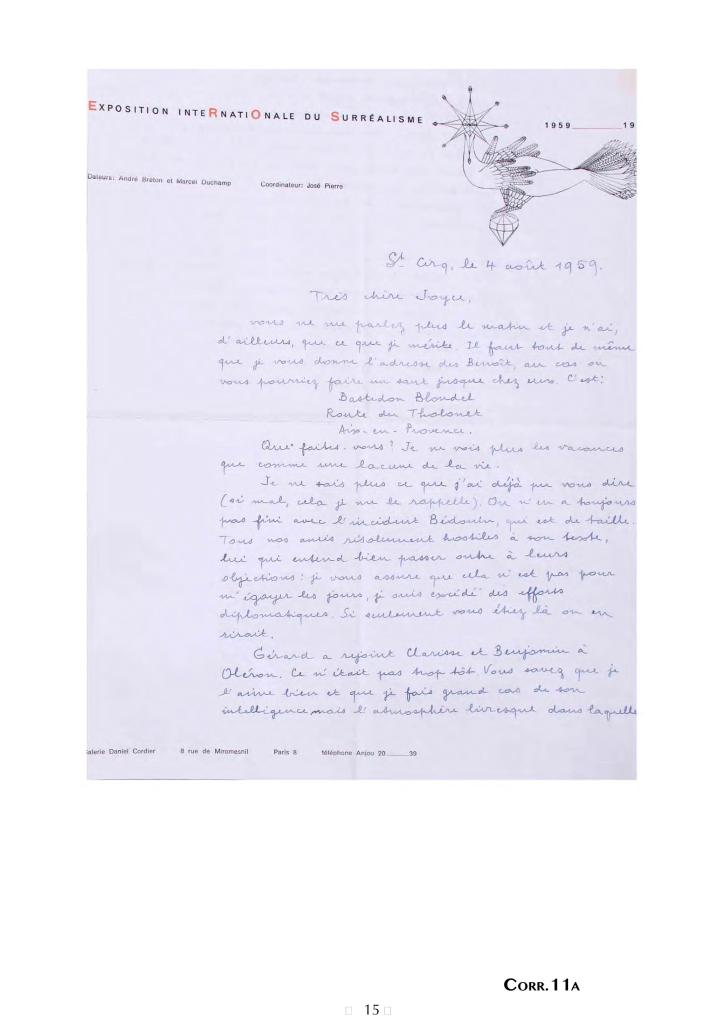 EXPOSITION INTERNATIONALE DU SURRÉALISME
1959 19
Dateurs: André Breton et Marcel Duchamp Coordinateur: José Pierre
St Cirq, le 4 août 1959.
Très chère Joyce,
vous ne me parlez plus le matin et je n'ai,
d'ailleurs, que ce que je mérite. Il faut tout de même
que je vous donne l'adresse des Benoît, au cas où
vous pourriez faire un saut jusque chez eux. C'est:
Bastidon Blondel
Route du Tholonet
Aix-en-Provence.
Que faites-vous? Je ne vois plus les vacances
que comme une lacune de la vie.
Je ne sais plus ce que j'ai déjà pu vous dire
(si mal, cela je me le rappelle). On n'en a toujours
pas fini avec l'incident Bédouin, qui est de taille.
Tous nos amis résolument hostiles à son texte,
lui qui entend bien passer outre à leurs
objections: je vous assure que cela n'est pas pour
m'égayer les jours, je suis excédé des efforts
diplomatiques. Si seulement vous étiez là on en
rirait.
Gérard a rejoint Clarisse et Benjamin à
Oléron. Ce n'était pas trop tôt. Vous savez que je
l'aime bien et que je fais grand cas de son
intelligence, mais l'atmosphère livresque dans laquelle
Galerie Daniel Cordier 8 rue de Miromesnil Paris 8 téléphone Anjou 20 39
CORR.11A
15